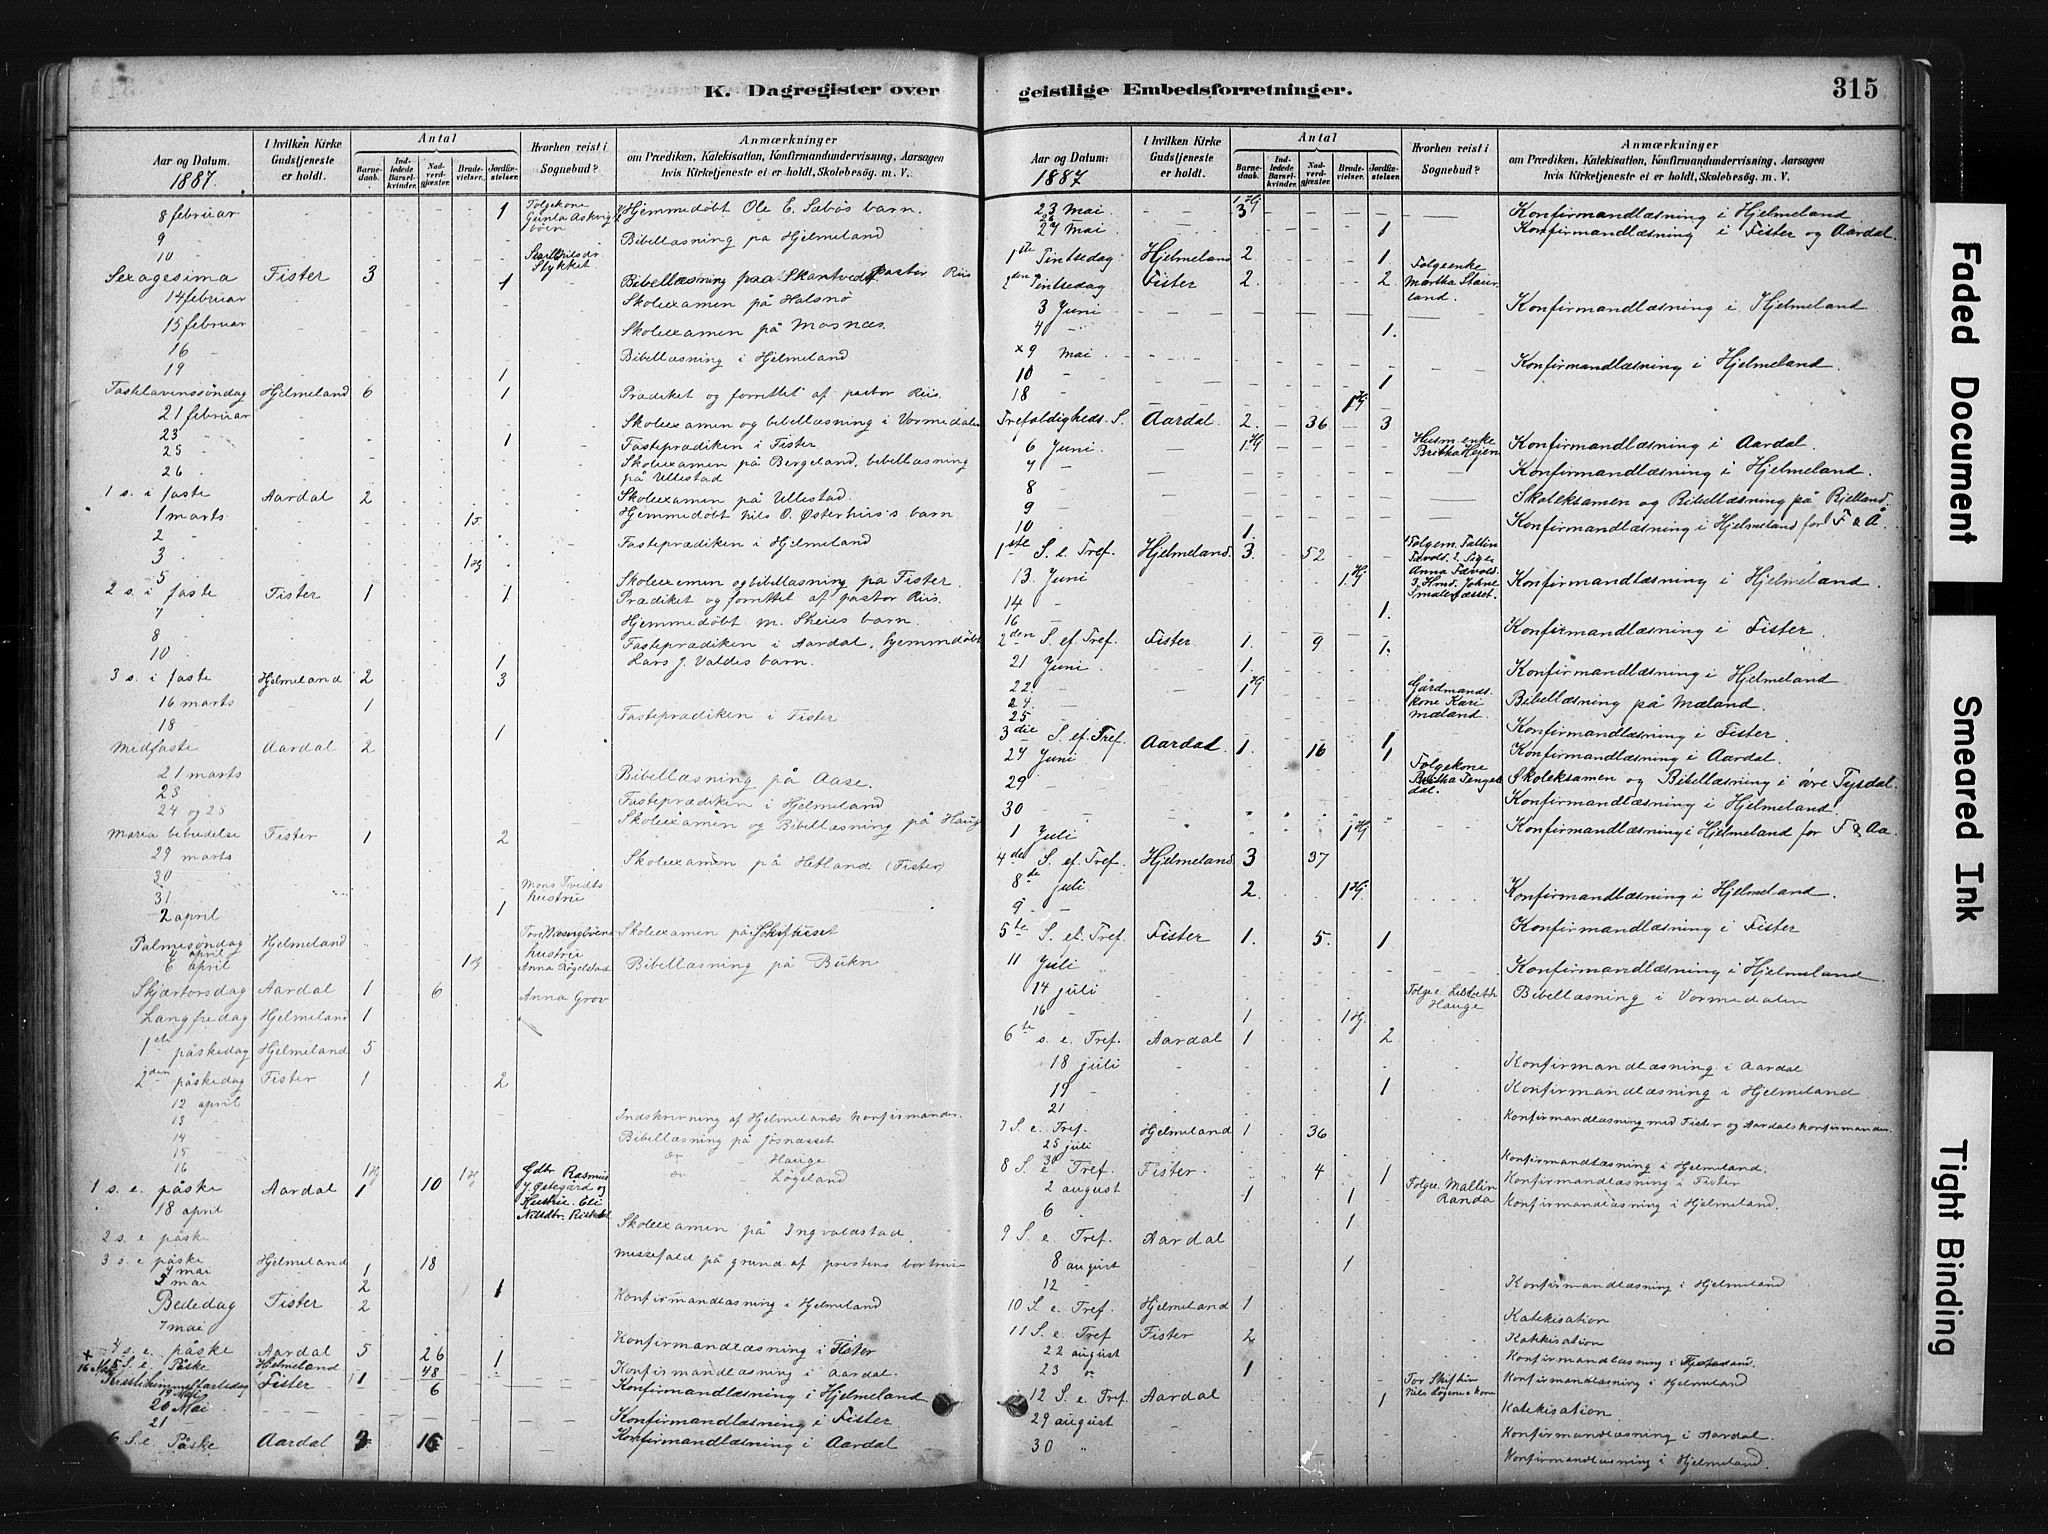 K. Dagregister over
Aar og Datum.
1887.
I hvilken Kirke Gudstjeneste er holdt.
Antal
Barnedaab.
Indledede Barselkvinder.
Nadverdgjæster.
Brudevielser.
Jordfæstelser.
Hvorhen reist i Sognebud?
Anmærkninger
om Prædiken, Katekisation, Konfirmandundervisning, Aarsagen
hvis Kirketjeneste ei er holdt, Skolebesøg. m. V.
8 februar 1 Følgekone Hjemmedøbt Ole E. Sæbös barn.
9 Bibellæsning på Hjelmeland
10
Sexagesima Fister 3 1 Bibellæsning paa pastor Riis
14 februar Skoleexamen på Halsnø
15 februar Skoleexamen på Mosnæs.
16 Bibellæsning i Hjelmeland
19 1
Fastelavenssöndag Hjelmeland 6 1 Prædiket og forrettet af pastor Riis.
21 februar Skoleexamen og bibellæsning i Vormedalen
23 1 Fasteprædiken i Fister
25 Skoleexamen på Bergeland, bibellæsning
26 på Ullestad
1 s. i faste Aardal 2 Skoleexamen på Ullestad.
1 marts Hjemmedøbt Nils O. Østerhus's barn
2 Fasteprædiken i Hjelmeland
3 1 Hj
5 Skoleexamen og bibellæsning på Fister.
2 s. i faste Fister 1 1 Prædiket og forrettet af pastor Riis.
7 Hjemmedøbt M. Skeies barn.
8 Fasteprædiken i Aardal, hjemmedøbt
10 1 Lars J. Valdes barn.
3 s. i faste Hjelmeland 2 3
16 marts 1
18 Fasteprædiken i Fister
1
Midfaste Aardal 2
21 marts Bibellæsning på Aase.
23 Fasteprædiken i Hjelmeland
24 og 25 Skoleexamen og Bibellæsning på Hauge
Maria bebudelse Fister 1 2
29 marts Skoleexamen på Hetland (Fister)
30
31 Mons Tvedts hustru
2 april 1
Palmesöndag Hjelmeland hustru Skoleexamen på
4 april
6 april 1 Hj Anna Bibellæsning på Bukn
Skjærtorsdag Aardal 1 6 Anna Grov
Langfredag Hjelmeland 1
1ste påskedag Hjelmeland 5
2den påskedag Fister 1 2
12 april
13 Indskrivning af Hjelmelands konfirmander.
14 Bibellæsning på Jösnæsset
15 do - Hauge
16 1 Hj 1 Hj do - Løgeland
1 s. e. påske Aardal 1 10 Gdbr. Rasmus
18 april Hustru Eli
2 s. e. påske Skoleexamen på Ingvaldstad.
3 s. e. påske Hjelmeland 1 18 Messefald på grund af prestens bortreise
4 mai
5 mai 2 1
Bededag Fister 2 Konfirmandlæsning i Hjelmeland
7 mai
4 s. e. påske Aardal 5 26 Konfirmandlæsning i Fister
+ 16 Mai 5 S. e. Påske Hjelmeland 48 1 Konfirmandlæsning i Aardal.
Kristi himmelfartsdag Fister 1 6 Konfirmandlæsning i Hjelmeland
19 Mai
20 Mai
21 Konfirmandlæsning i Fister.
6 S. e. Påske Aardal 16 Konfirmandlæsning i Aardal
geistlige Embedsforretninger.
315
Aar og Datum:
1887
I hvilken Kirke Gudstjeneste er holdt.
Antal
Barnedaab.
Indledede Barselkvinder.
Nadverdgjæster.
Brudevielser.
Jordfæstelser.
Hvorhen reist i Sognebud?
Anmærkninger
om Prædiken, Katekisation, Konfirmandundervisning, Aarsagen
hvis Kirketjeneste ei er holdt, Skolebesøg. m. V.
23 Mai 3 Konfirmandlæsning i Hjelmeland
27 Mai 1 Konfirmandlæsning i Fister og Aardal.
1ste Pintsedag Hjelmeland 2 1.
2den Pintsedag Fister 2. 2 Følgeenke Martha
3 Juni Konfirmandlæsning i Hjelmeland.
4 1.
x 9 Mai Konfirmandlæsning i Hjelmeland.
10 1
18 1 Hj
Trefoldigheds. S. Aardal 2. 36 3
6 Juni 1 Hj Husm. enke Britha Konfirmandlæsning i Aardal.
7 Konfirmandlæsning i Hjelmeland.
8 Skoleksamen og Bibellæsning på
9 Konfirmandlæsning i Hjelmeland for F & Å.
10 1.
1ste S. e. Tref. Hjelmeland. 3. 52
13. Juni 1 Hj Konfirmandlæsning i Hjelmeland.
14 1.
16 Konfirmandlæsning i Fister.
2den S. ef. Tref. Fister 1. 9 1.
21 Juni 1. Konfirmandlæsning i Hjelmeland.
22. 1 Hj Gårdmandskone Kari Mæland. Bibellæsning på Mæland.
24.
25 Konfirmandlæsning i Fister.
3die S. ef. Tref. Aardal 1. 16 1
27 Juni 1 Følgekone Konfirmandlæsning i Aardal.
29 Skoleksamen og Bibellæsning i övre Tysdal.
30 Konfirmandlæsning i Hjelmeland.
1 Juli 1 Hj Konfirmandlæsning i Hjelmeland for F & Aa.
4de S. ef. Tref. Hjelmeland 3 37
8de juli 2. 1 Hj. Konfirmandlæsning i Hjelmeland.
9
5te S. ef. Tref. Fister 1. 5. 1 Konfirmandlæsning i Fister
11 Juli Konfirmandlæsning i Hjelmeland.
14 juli Følge e. Lisbeth Hauge Bibellæsning i Vormedalen
16 1 1 Hj.
6te s. e. Tref. Aardal 1 2
18 juli Konfirmandlæsning i Aardal
19 1 Konfirmandlæsning i Hjelmeland.
21
7 S. e. Tref. Hjelmeland 1 36 Konfirmandlæsning med Fister og Aardals konfirmander.
25 juli
30 Konfirmandlæsning i Hjelmeland.
8 S. e. Tref. Fister. 4 1 Konfirmandlæsning i Fister
2 august 1 1 Følge. Mallin Randa Konfirmandlæsning i Hjelmeland.
6 1
9 S. e. Tref. Aardal
8 august 1
12 Konfirmandlæsning i Hjelmeland
10 S. e. Tref. Hjelmeland 1 Katekisation
11 S. e. Tref Fister 2 Katekisation
22 august Konfirmandlæsning i
23 1 Konfirmandlæsning i Hjelmeland
12 S. e. Tref. Aardal 1 Katekisation.
29 august Konfirmandlæsning i Aardal.
30 " Konfirmandlæsning i Hjelmeland.
Faded Document
Smeared Ink
Tight Binding